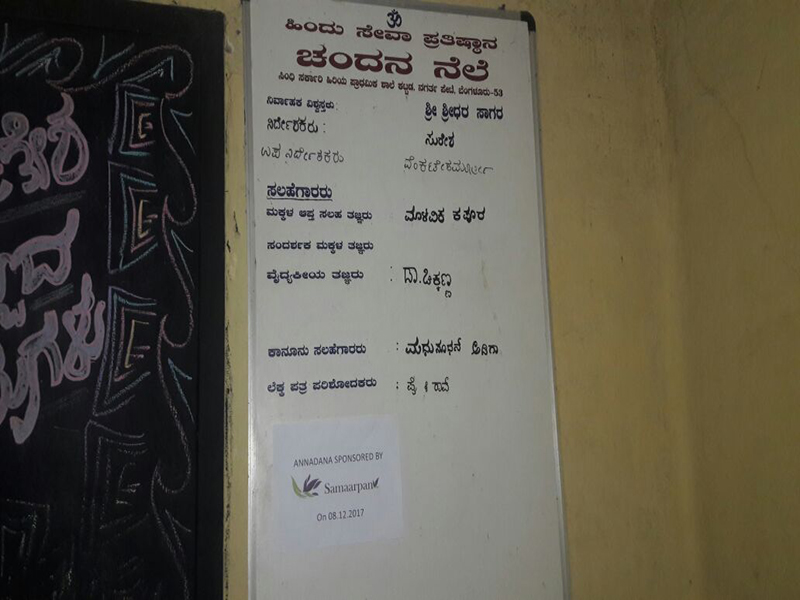 ॐ
ಹಿಂದು ಸೇವಾ ಪ್ರತಿಷ್ಠಾನ
ಚಂದನ ನೆಲೆ
ಸಿಂಧಿ ಸರ್ಕಾರಿ ಹಿರಿಯ ಪ್ರಾಥಮಿಕ ಶಾಲೆ ಕಟ್ಟಡ, ನಗರ್ತ ಪೇಟೆ, ಬೆಂಗಳೂರು-53
ನಿರ್ವಾಹಕ ವಿಶ್ವಸ್ತರು: ಶ್ರೀ ಶ್ರೀಧರ ಸಾಗರ
ನಿರ್ದೇಶಕರು: ಸುರೇಶ
ಉಪ ನಿರ್ದೇಶಕರು
ಸಲಹೆಗಾರರು
ಮಕ್ಕಳ ಆಪ್ತ ಸಲಹ ತಜ್ಞರು ಮಾಳವಿಕ ಕಪೂರ
ಸಂದರ್ಶಕ ಮಕ್ಕಳ ತಜ್ಞರು
ವೈದ್ಯಕೀಯ ತಜ್ಞರು : ಡಾ.ಚಿಕ್ಕಣ್ಣ
ಕಾನೂನು ಸಲಹೆಗಾರರು : ಮಧುಸೂಧನ್ ಅಡಿಗಾ
ಲೆಕ್ಕ ಪತ್ರ ಪರಿಶೋದಕರು :
ANNADANA SPONSORED BY
Samaarpan
On 08.12.2017